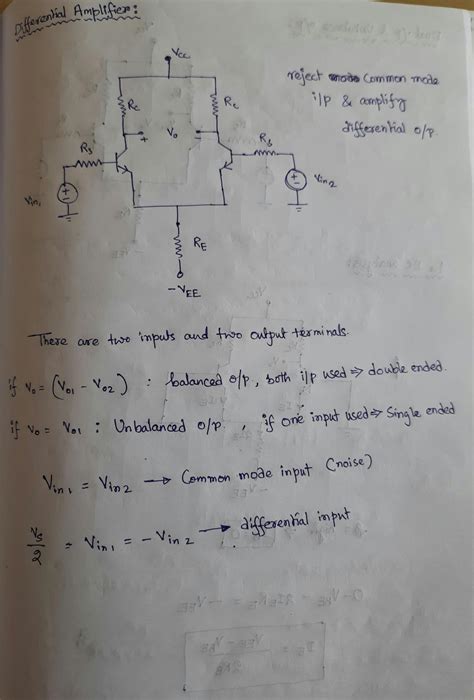 Differential Amplifier:
Vcc
Rc
Rc
+ Vo -
Rs
Rs
Vin1
Vin2
RE
-VEE
reject common mode
i/p & amplify
differential o/p.
There are two inputs and two output terminals.
if Vo = (Vo1 - Vo2) : balanced o/p, both i/p used ⇒ double ended.
if Vo = Vo1 : Unbalanced o/p, if one input used ⇒ Single ended
Vin1 = Vin2 → Common mode input (noise)
Vs/2 = Vin1 = -Vin2 → differential input